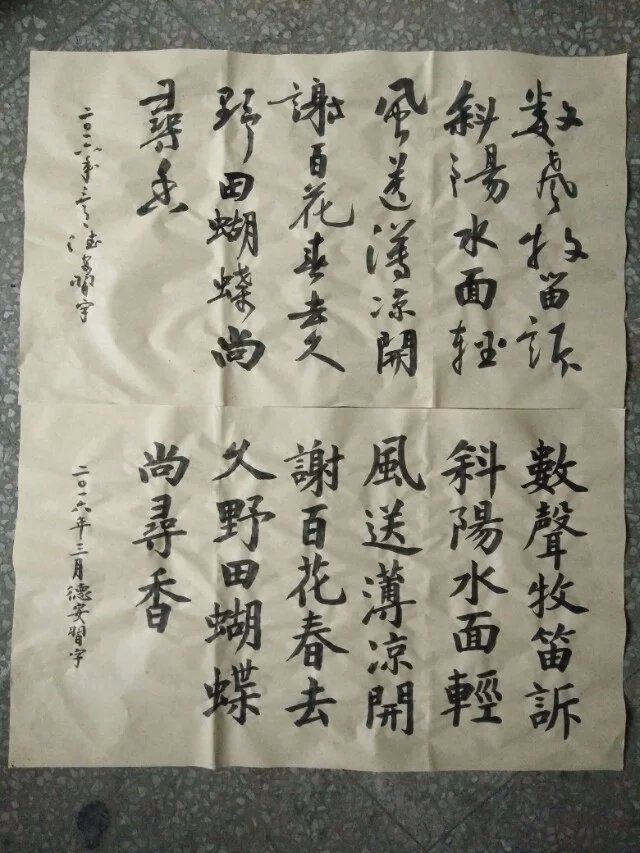 數聲牧笛訴
斜陽水面輕
風送薄凉開
謝百花春去久
野田蝴蝶尚
尋香
二〇一六年三月德安習字
數聲牧笛訴
斜陽水面輕
風送薄凉開
謝百花春去
久野田蝴蝶
尚尋香
二〇一六年三月德安習字